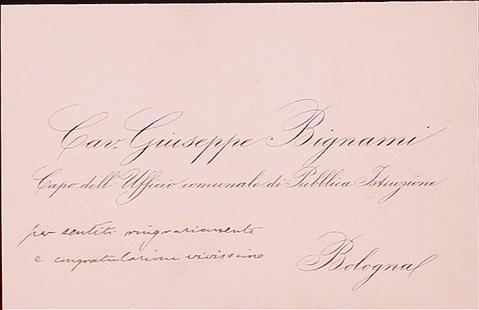 Cav. Giuseppe Bignami
Capo dell'Ufficio comunale di Pubblica Istruzione
per sentiti ringraziamente
e congratulazioni vivissime
Bologna